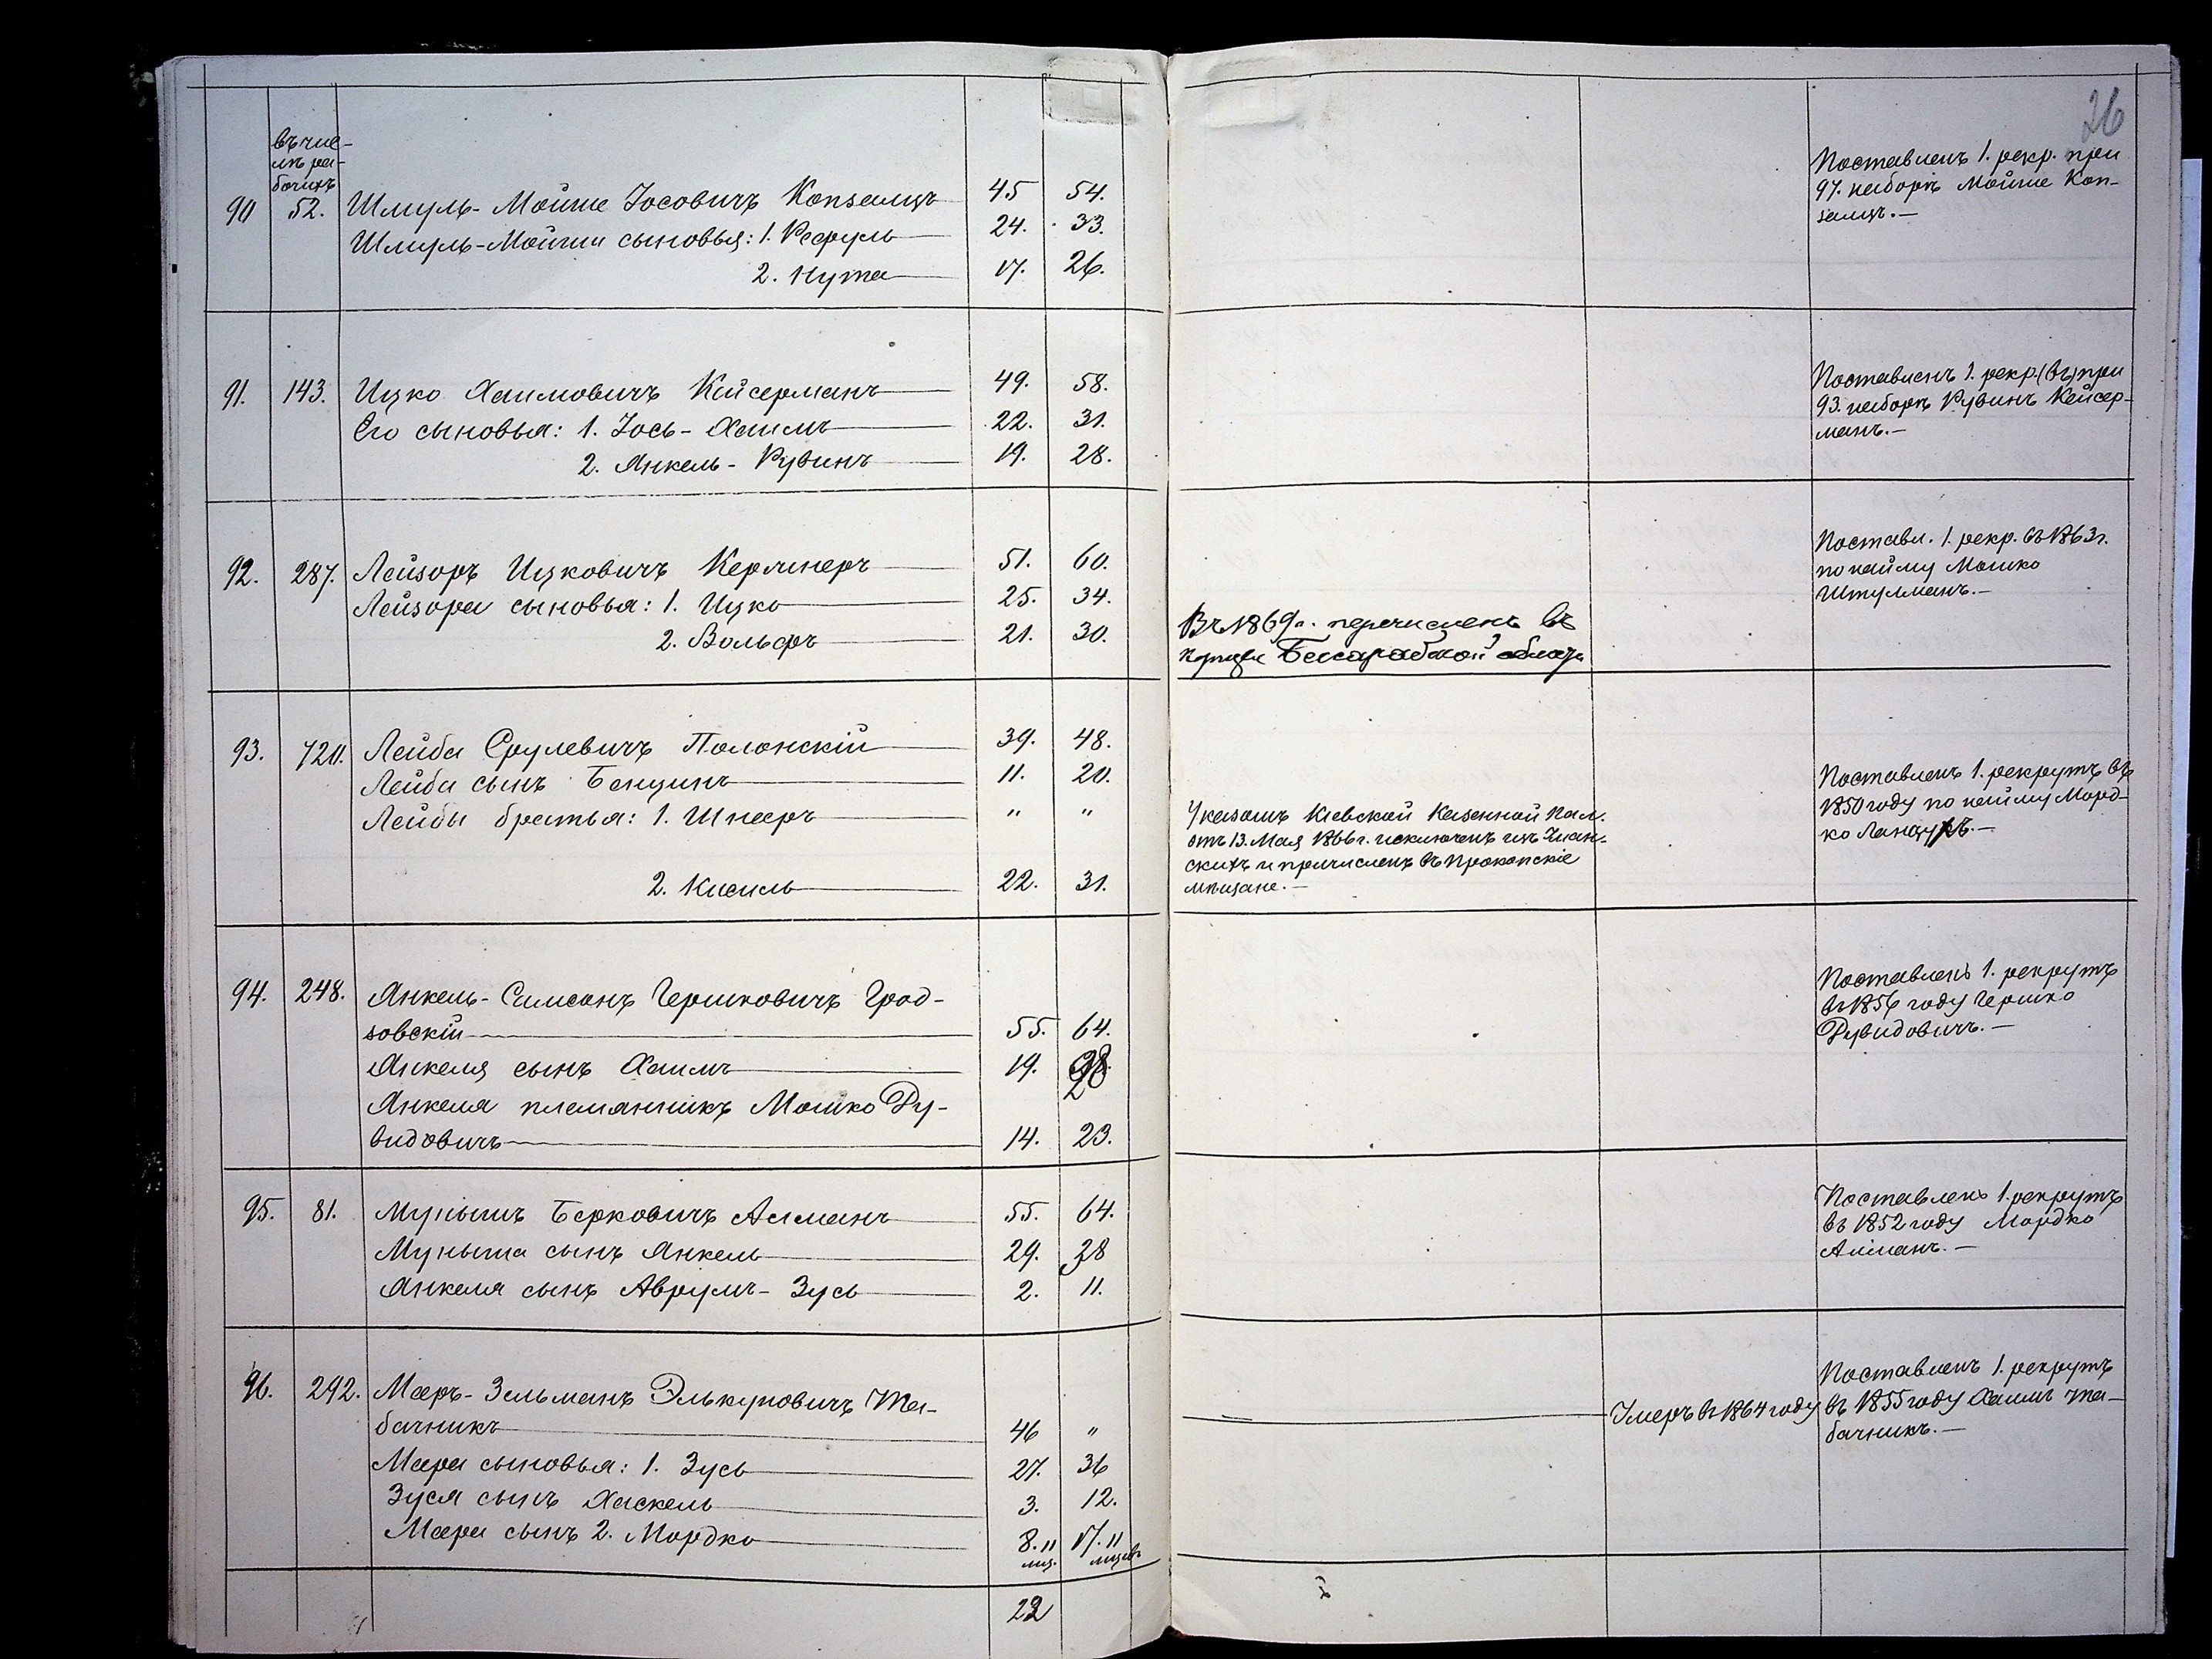 26
въ чис-
лѣ ра-
бочихъ
90 52. Шмуль-Мойше Іосовичъ Копзаицъ 45 54.
Шмуль-Мойши сыновья: 1. Рефуль 24. 33.
2. Нута 17. 26.
Поставленъ 1. рекр. при
97. наборѣ Мойше Коп-
заицъ.—
91. 143. Ицко Хаимовичъ Кейсерманъ 49. 58.
Его сыновья: 1. Іось-Хаимъ 22. 31.
2. Янкель-Рувинъ 19. 28.
Поставленъ 1. рекр. (въ) при
93. наборѣ Рувинъ Кейсер-
манъ.—
92. 287. Лейзоръ Ицковичъ Кержнеръ 51. 60.
Лейзора сыновья: 1. Ицко 25. 34.
2. Вольфъ 21. 30.
Въ 1869 г. перечисленъ въ
Бесарабской области
Поставл. 1. рекр. въ 1863 г.
по найму Мошко
Штульманъ.—
93. 720. Лейба Срулевичъ Полонскій 39. 48.
Лейбы сынъ Бенцинъ 11. 20.
Лейбы братья: 1. Шнееръ " "
2. Кисиль 22. 31.
Указомъ Кіевской Казенной Пал.
отъ 13. Мая 1866 г. исключенъ изъ Уман-
скихъ и причисленъ въ Прокопскіе
мѣщане.—
Поставленъ 1. рекрутъ въ
1850 году по найму Морд-
ко
94. 248. Янкель-Симсонъ Гершковичъ Грод-
зовскій 55. 64.
Янкеля сынъ Хаимъ 19. 28
Янкеля племянникъ Мошко Ру-
видовичъ 14. 23.
Поставленъ 1. рекрутъ
въ 1856 году Гершко
Рувидовичъ.—
95. 81. Мунышъ Берковичъ Асманъ 55. 64.
Муныша сынъ Янкель 29. 38
Янкеля сынъ Аврумъ-Зусь 2. 11.
Поставленъ 1. рекрутъ
въ 1852 году Мордко
Асманъ.—
96. 292. Мееръ-Зельманъ Элькуновичъ Та-
бачникъ 46 "
Меера сыновья: 1. Зусь 27. 36
Зуся сынъ Хаскель 3. 12.
Меера сынъ 2. Мордко 8. 11 17. 11
мец. мицев
Умеръ въ 1864 году
Поставленъ 1. рекрутъ
въ 1855 году Хаимъ Та-
бачникъ.—
22